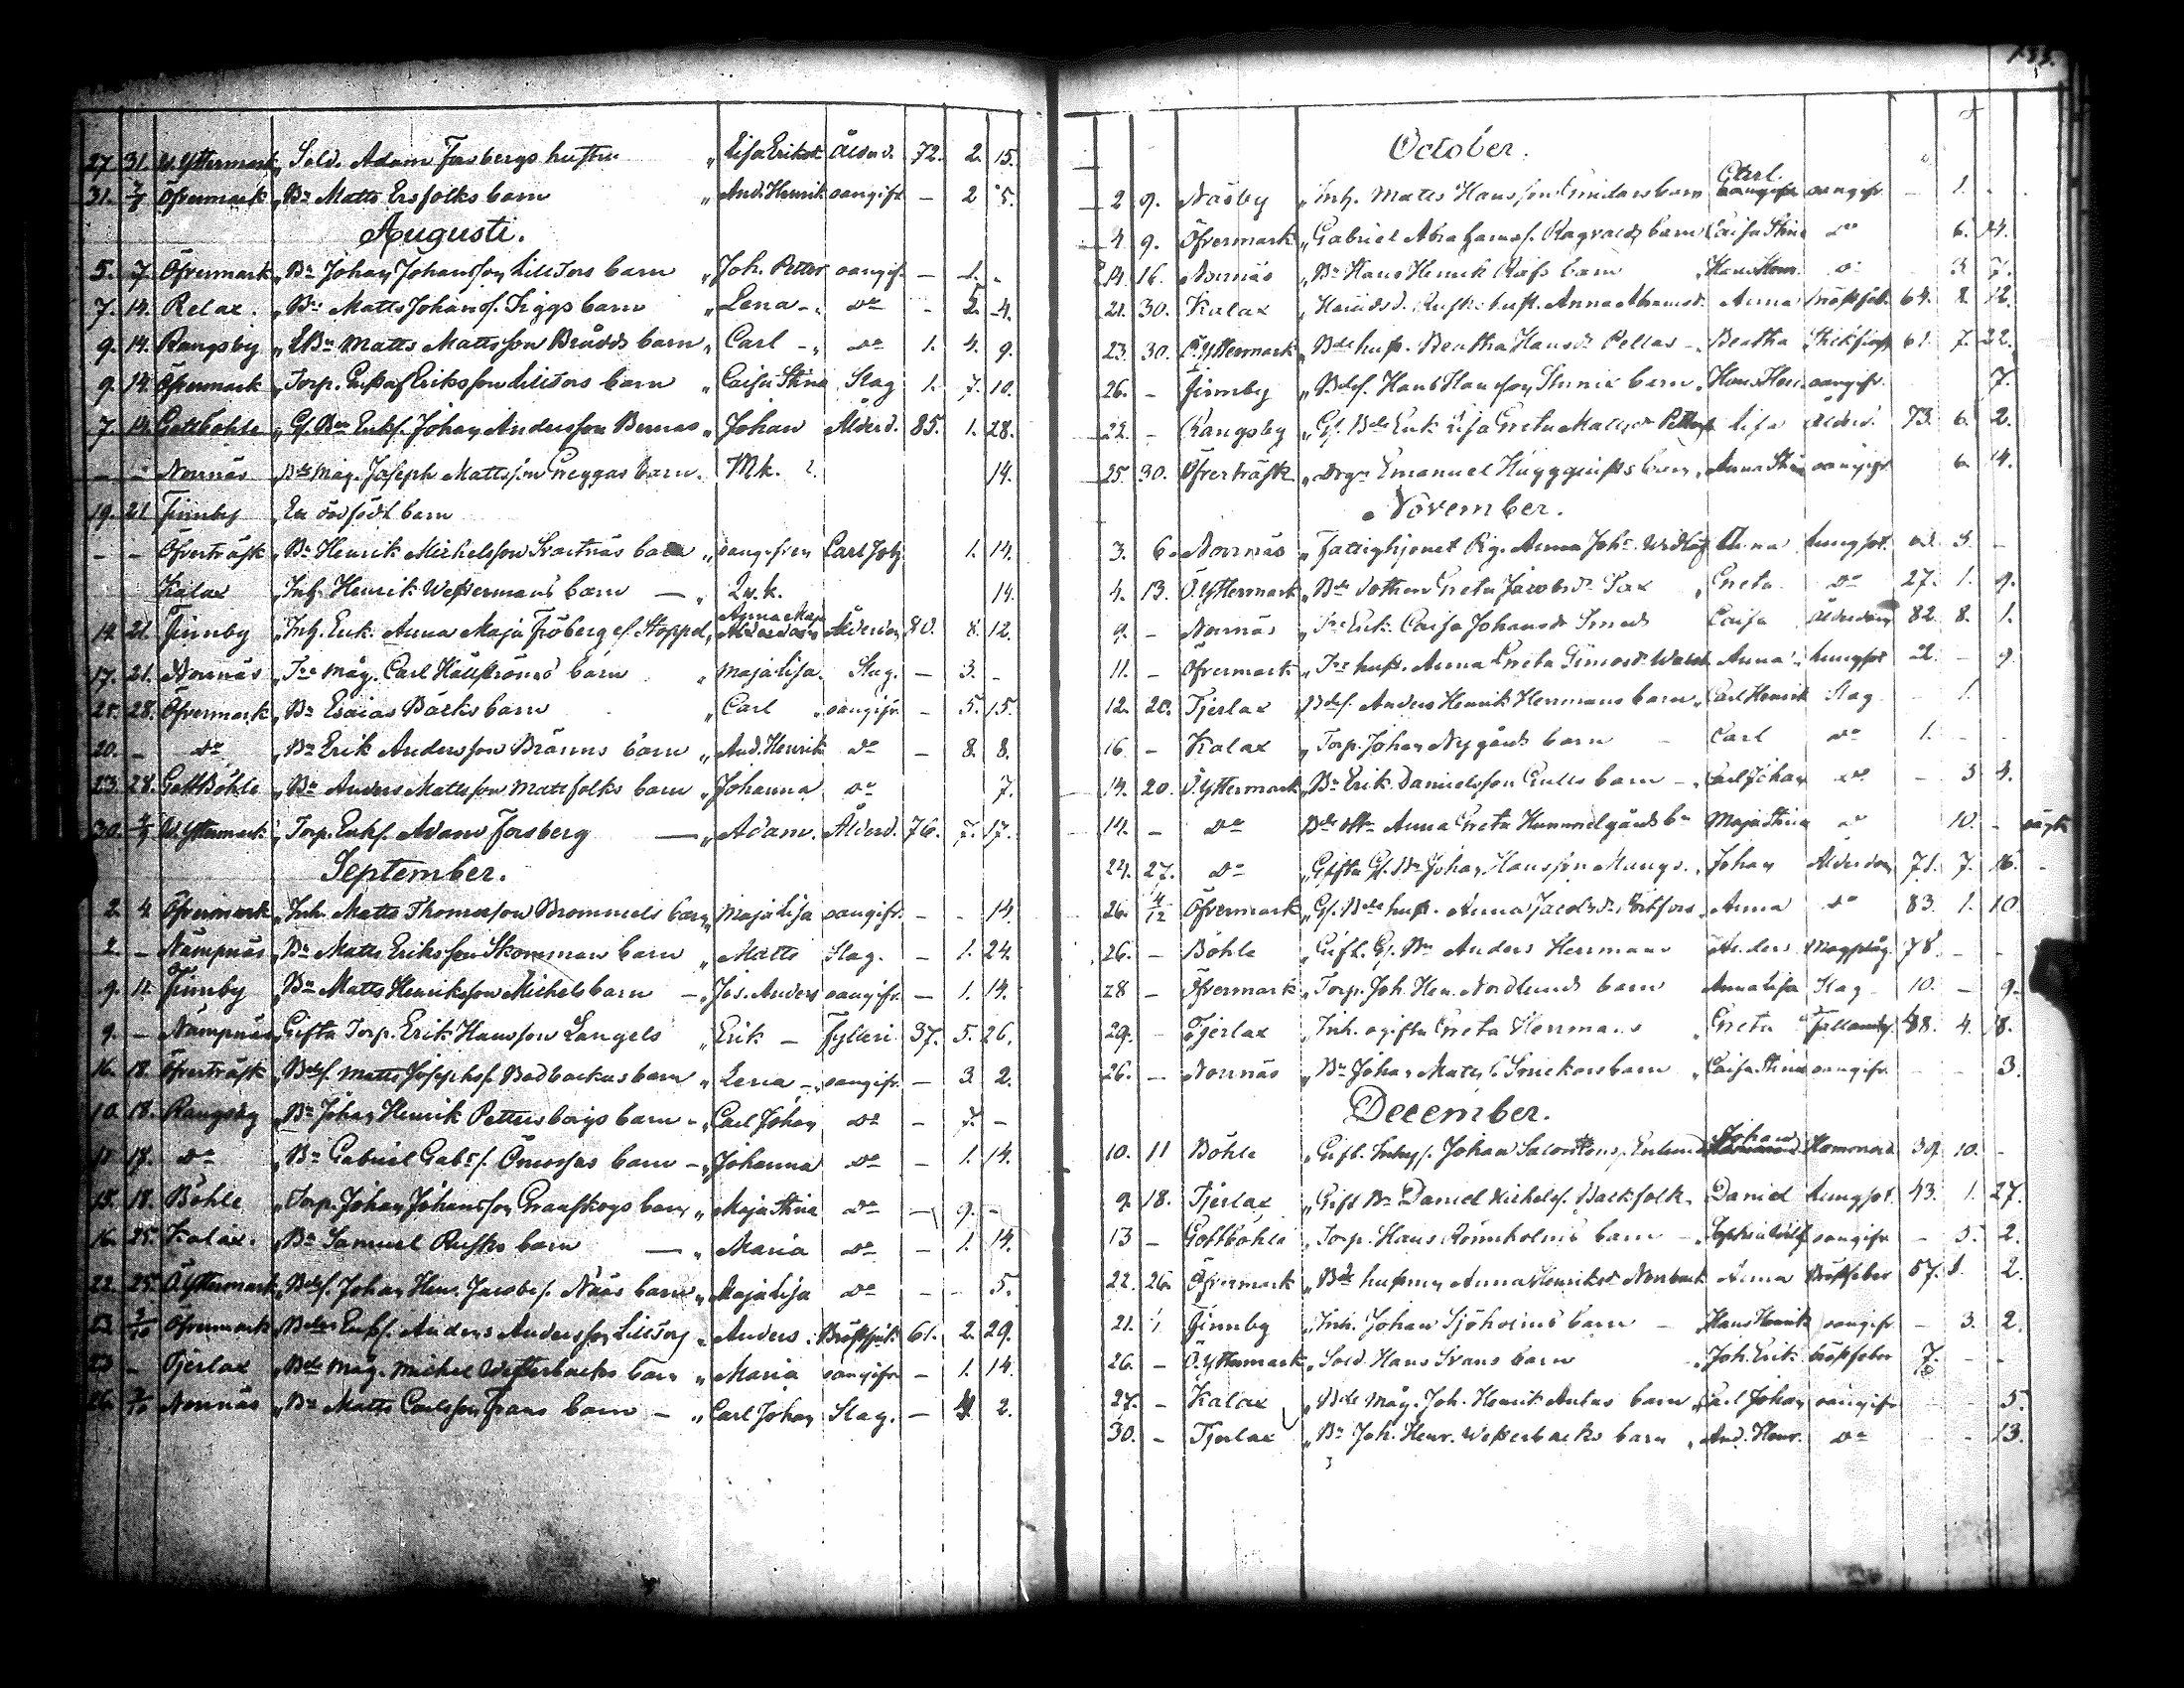 27. 31. W. Yttermark „ Sold. Adam Forsbergs hustru „ Lisa Eriksd. Ålderd. 72. 2. 15.
31. 7/8 Öfvermark „ Bn Matts Ersfolks barn „ And. Henrik oangifv. – 2 5.
Augusti.
5. 7. Öfvermark „ Bn Johan Johansson Lillsjös barn „ Joh. Petter oangif. – 1. -
7. 14. Relax. „ Bn Matts Johanss. Figgs barn „ Lena - „ do - 5. 4.
9. 14. Rangsby „ Bn Matts Mattsson Brådds barn „ Carl - „ do 1. 4. 9.
9. 14. Öfvermark „ Torp. Gustaf Eriksson Lillsjös barn „ Caisa Stina Slag 1. 7. 10.
7. 14. Gottböhle „ Gf. Bn Enkf. Johan Andersson Bernas „ Johan Ålderd. 85. 1. 28.
– – Norrnäs „ Bds måg. Joseph Mattsson Greggas barn. Mk. 14.
19. 21 Finnby „ En dödfödt barn
– – Öfverträsk „ Bn Henrik Michelsson Svartnäs barn „ oangifven Carl Joh. 1. 14.
Kalax „ Inh. Henrik Westermans barn — „ Qv.k. 14.
14. 21. Finnby „ Inh. Enk. Anna Maja Fröberg ef. Stoppel „ Anna Maja Ålderdom 80. 8. 12.
17. 21. Norrnäs „ måg. Carl Hällströms barn „ Maja Lisa. Slag. – 3. -
25. 28. Öfvermark „ Bn Esaias Bäcks barn „ Carl „ oangifv. – 5. 15.
20. – do „ Bn Erik Andersson Bränns barn „ And. Henrik do – 8. 8.
23. 28. Gottböhle „ Bn Anders Mattsson Mattfolks barn „ Johanna do 7.
30. 4/9 W. Yttermark „ Torp. Enkf. Adam Forsberg — „ Adam. Ålderd. 76. 7. 17.
September.
2. 4. Öfvermark „ Inh. Matts Thomasson Brommels barn „ Maja Lisa oangifv. – - 14.
2. – Nämpnäs „ Bn Matts Eriksson Skomman barn „ Matts Slag. – 1. 24.
9. 11. Finnby „ Bn Matts Henriksson Michels barn – „ Jos. Anders oangifv. – 1. 14.
9. – Nämpnäs „ Gifta Torp. Erik Hansson Langels „ Erik – Fylleri 37. 5. 26.
16. 18. Öfverträsk „ Bds. Matts Josephs. Badbackas barn „ Lena - „ oangifv. – 3. 2.
10. 18. Rangsby „ Bn Johan Henrik Pettersborgs barn - „ Carl Johan do – 7. –
17. 18. do „ Bn Gabriel Gabr.s. Ömossas barn – „ Johanna do – 1. 14.
15. 18. Böhle „ Torp. Johan Johansson Granskogs barn „ Maja Stina do – 9. –
16. 25. Kalax. „ Bn Samuel Rusks barn — „ Maria do – 1. 14.
22. 25. Ö. Yttermark „ Bds. Johan Hen. Jacobs. Näs barn „ Maja Lisa do – - 5.
23. 2/10 Öfvermark „ Enkf. Anders Andersson Lillsjö „ Anders. Bröstsjuk. 61. 2. 29.
23 – Tjerlax „ Bds måg. Michel Westerbacks barn „ Maria oangifv – 1. 14.
26. 2/10 Norrnäs „ Bn Matts Carlsson Frans barn – „ Carl Johan Slag. – 4. 2.
October.
2 9. Näsby „ Inh. Matts Hansson barn Carl. oangifv. – 1. -
4. 9. Öfvermark „ Gabriel Abrahams. Ragvalds barn Caisa Stina do 6. 24.
14. 16. Norrnäs „ Bn Hans Henrik Räfs barn Hans Henr. do 3. 7.
21. 30. Kalax „ hust. Anna Abramsd. Anna bröstfeb. 64. 8. 12.
23. 30. Ö. Yttermark „ Bds hust. Beatha Hansd. Pellas – „ Beatha 61. 7. 22.
26. – Finnby „ Bds. Hans Hansson barn „ Hans Hen. oangifv. 7.
22. – Rangsby „ Gf. Bds Enk. Lisa Greta Mattsdr Lisa Ålderd. 73. 6. 2.
25. 30. Öfverträsk „ Drgn Emanuel Huggquists barn „ Anna Stina oangifv. 6. 14.
November.
3. 6. Norrnäs „ Fattighjonet Pig. Anna Johs. Anna lungsot. 63. 3. –
4. 13. Ö. Yttermark „ Bds dottren Greta Jacobsdr Sax „ Greta do 27. 1. 9.
9. – Norrnäs „ Enk. Caisa Johansdr Smeds Caisa Ålderdom 82. 8. 1.
11. – Öfvermark „ hust. Anna Greta Simonsd. Anna lungsot 22. – 9
12. 20. Tjerlax „ Bds. Anders Henrik Hermans barn „ Carl Henrik Slag 1.
16. – Kalax „ Torp. Johan Nygårds barn – Carl do 1. – -
14. 20. Ö. Yttermark „ Bn Erik Danielsson Gulls barn – „ Carl Johan do – 3 4.
14. – do Anna Greta Hammelgårds bn Maja Stina do 10. –
24. 27. do „ Gifta Gf. Bn Johan Hansson Mangs. „ Johan Ålderdom 71. 7. 16.
26. 4/12 Öfvermark „ Gf. Bds hust. Anna Jacobsdr „ Anna do 83. 1. 10.
26. – Böhle „ Gift. Gf. Bn Anders Herrmans Anders Magplåg. 78. – -
28 – Öfvermark „ Torp. Joh. Hen. Nordlunds barn Anna Lisa Slag 10. – 9.
29. - Tjerlax „ Inh. ogifta Greta Herrmans „ Greta Fallandes. 48. 4. 18.
26. – Norrnäs „ Bn Johan Matts.s. Snickars barn „ Caisa Stina oangifv. - - 3.
December.
10. 11 Böhle „ Gift. Johan Johan 39. 10. -
9. 18. Tjerlax „ Gift Bn Daniel Michels. Backfolk. Daniel lungsot. 43. 1. 27.
13 – Gottböhle „ Torp. Hans Rönnholms barn – oangifv. – 5. 2.
22. 26. Öfvermark „ Bds hustrun Anna Henriksd. Norrback Anna Bröstfeber 57. 1. 2.
21. „ Finnby „ Inh. Johan Sjöholms barn – Hans Henrik oangifv. – 3. 2.
26. – Ö. Yttermark „ Sold. Hans Svans barn „ Joh. Erik bröstfeber 7. - -
27. – Kalax „ Bds måg. Joh. Henrik Antus barn „ Carl Johan oangifv. - - 5.
30. – Tjerlax „ Bn Joh. Henr. Westerbacks barn „ And. Henr. do - - 13.